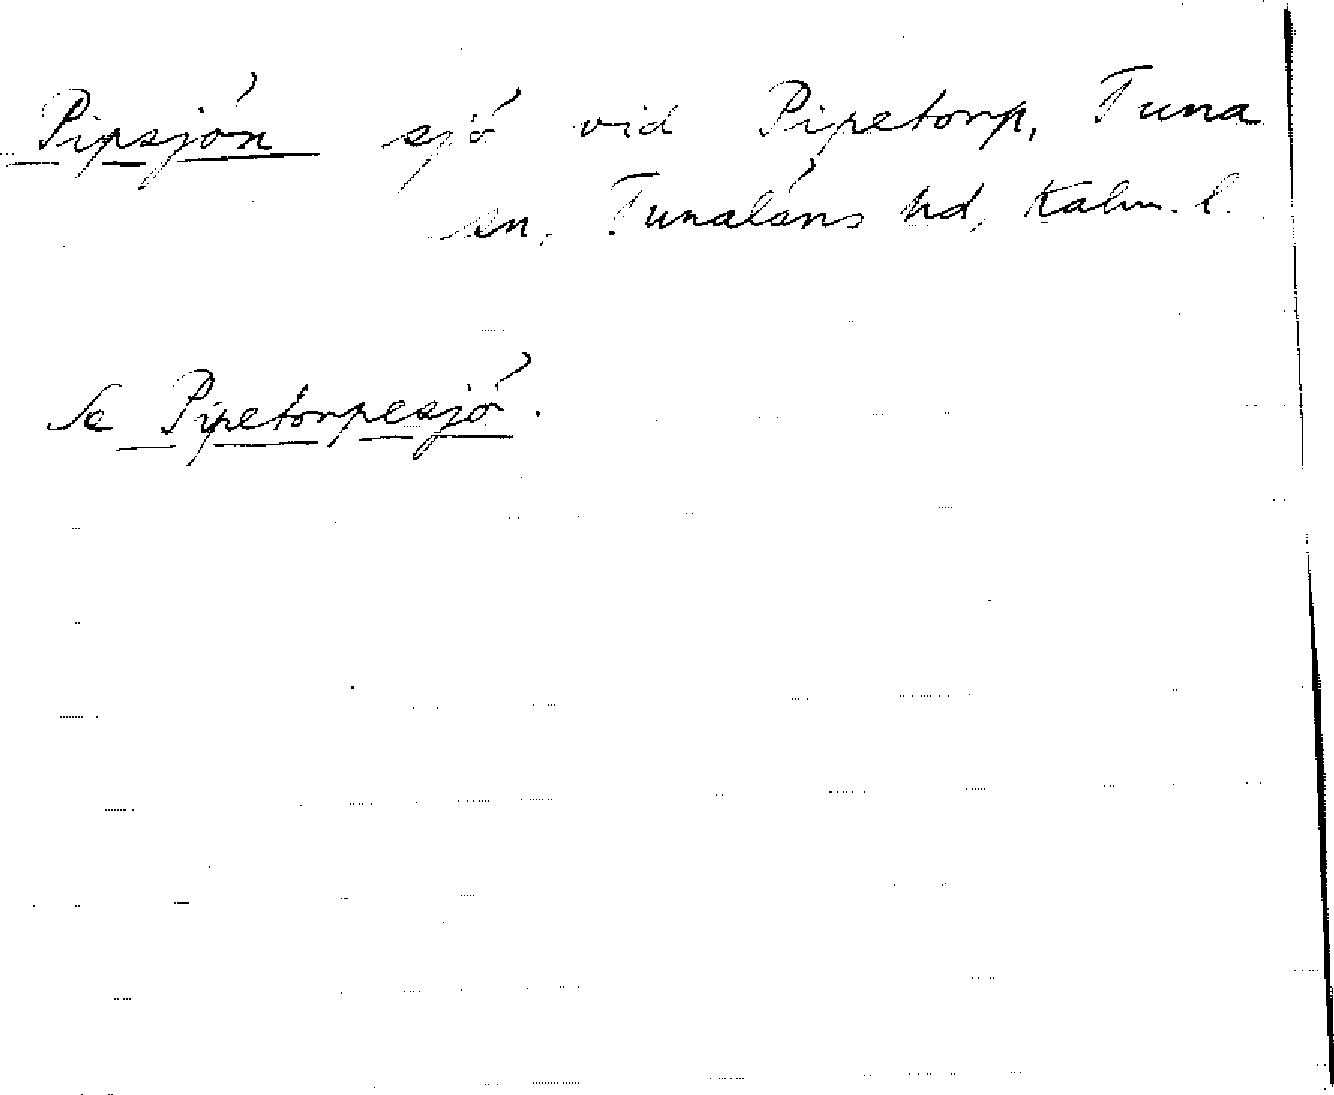 Pipsjön sjö vid Pipetorp, Tuna
sn, Tunaläns hd, Kalm. l.
Se Pipetorpesjö.